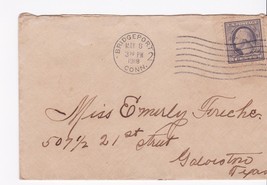 BRIDGEPORT
2
CONN.
Miss Emerly Fireche.
507½ 21st Street
Galveston
Texas